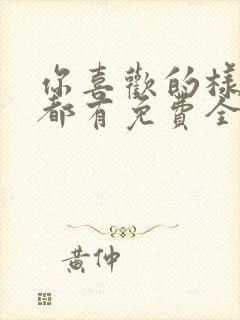 你喜歡的樣
都有免費全
黃仲